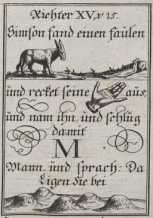 Richter XV, v 15.
Simson fand einen faülen
und recket seine aus,
und nam ihn, und schlug
damit
M
Mann, und sprach: Da
ligen Sie bei